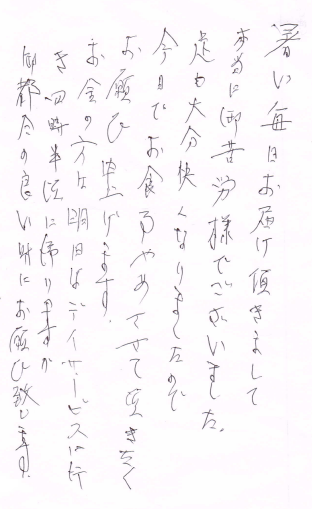 暑い毎日お届け頂きまして
本当に御苦労様でございました。
足も大分快くなりましたので
今日でお食事やめさせて頂きたく
お願い申し上げます。
お金の方は明日はデイサービスに行
き四時半頃に帰りますが
御都合の良い時にお願い致します。